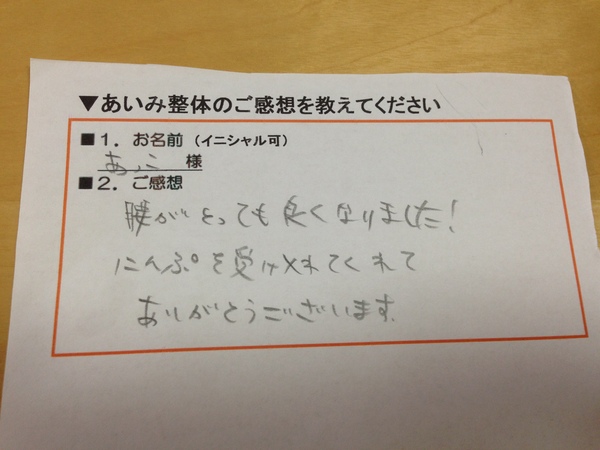 ▼あいみ整体のご感想を教えてください
■1. お名前（イニシャル可）
あっこ 様
■2. ご感想
腰がとっても良くなりました!
にんぷを受け入れてくれて
ありがとうございます.